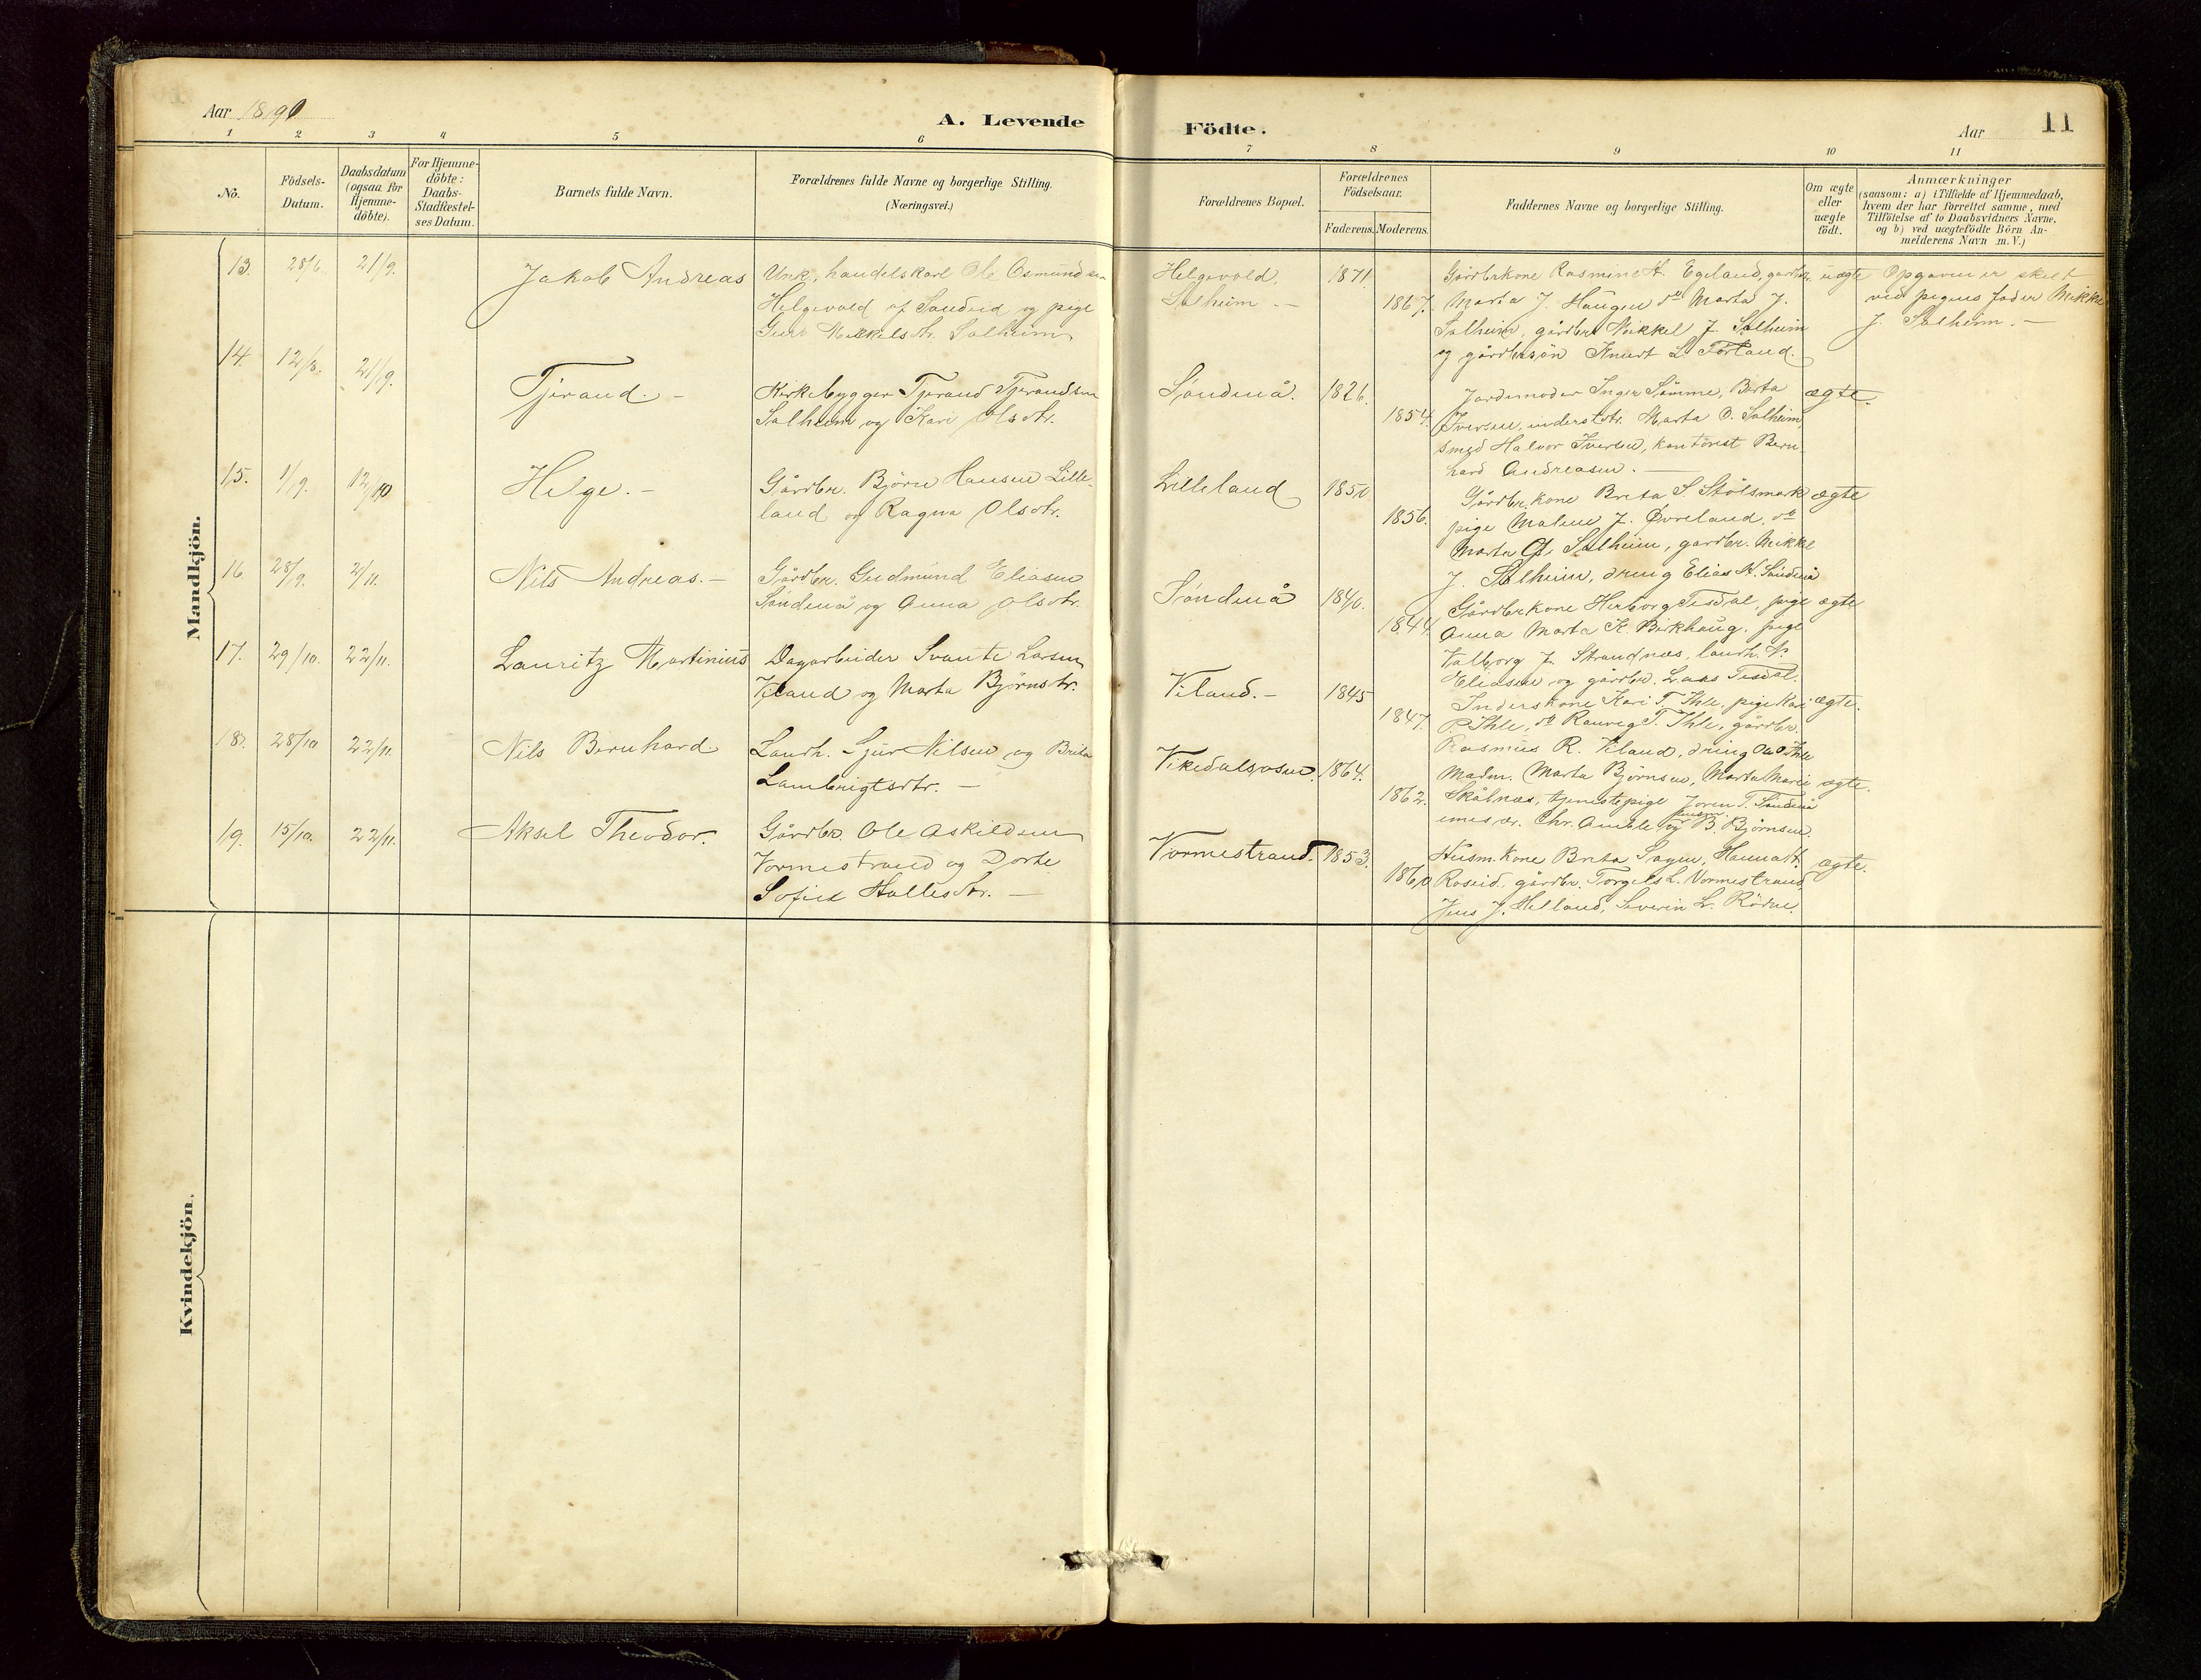 Aar 1890
A. Levende
Födte.
Aar
11
1 2 3 4 5 6 7 8 9 10 11
No.
Födsels-
Datum.
Daabsdatum
(ogsaa for
Hjemme-
döbte).
For Hjemme-
döbte:
Daabs-
Stadfæstel-
ses Datum.
Barnets fulde Navn.
Forældrenes fulde Navne og borgerlige Stilling.
(Næringsvei.)
Forældrenes Bopæl.
Forældrenes
Födselsaar.
Faderens.
Moderens.
Faddernes Navne og borgerlige Stilling.
Om ægte
eller
uægte
födt.
Anmærkninger
(saasom: a) i Tilfælde af Hjemmedaab,
hvem der har forrettet samme, med
Tilföielse af to Daabsvidners Navne,
og b) ved uægtefödte Börn An-
melderens Navn m. V.)
Mandkjön.
13. 28/6. 21/9. Jakob Andreas
Unk., handelskarl Ole Osmundsen
Helgevold af Sandeid og pige
Guri Mikkelsdtr. Solheim
Helgevold,
Solheim. -
1871.
1867.
Gårdbrkone Rasmine H. Egeland, gårdbr.
Marta J. Haugen do Marta J.
Solheim, gårdbr. Mikkel J. Solheim
og gårdbrsön Knut L. Förland.
uægte
Opgaven er skeet
ved pigens fader Mikkel
J. Solheim. -
14. 12/8. 21/9. Tjerand. -
Kirkebygger Tjerand Tjerandsen
Solheim og Kari Olsdtr.
Söndenå.
1826.
1854.
Jordemoder Inger Sömme, Berta
Iversen, Marta O. Solheim
smed Halvor Iversen, kontorist Bern-
hard Andreasen. -
ægte.
15. 1/9. 12/10 Helge. -
Gårdbr. Björn Hansen Lille-
land og Ragna Olsdtr.
Lilleland
1850.
1856.
Gårdbr.kone Brita S. Stölsmark
pige Malene J. Övreland, do
Marta Solheim, gårdbr. Mikkel
J. Solheim, dreng Elias H. Söndenå
ægte
16. 28/9. 2/11. Nils Andreas. -
Gårdbr. Gudmund Eliasen
Söndenå og Anna Olsdtr.
Söndenå
1840.
1844.
Gårdbrkone Herborg Tisdal, pige
Anna Marta K. Birkhaug, pige
Valborg J. Strandnæs, landh. N.
Eliasen og gårdbr. Lars Tisdal.
ægte
17. 29/10. 22/11. Lauritz Martinius
Dagarbeider Svante Larsen
Veland og Marta Björnsdtr.
Veland. -
1845
1847.
Inderskone Kari T. Ihle, pige Kari
P. Ihle, do Ranveg T. Ihle, gårdbr.
Rasmus R. Veland, dreng Ihle
ægte.
18. 28/10 22/11. Nils Bernhard.
Landh. Sjur Nilsen og Brita
Lambrigtsdtr. -
Vikedalsosen.
1864.
1862.
Madm. Marta Björnsen, Marta Marie
Skålnæs, tjenestepige Joren T. Söndenå
Chr. Amble og B. Björnsen.
ægte.
19. 15/10. 22/11. Aksel Theodor.
Gårdbr. Ole Askildsen
Vormestrand og Dorte
Sofie Hallesdtr. -
Vormestrand.
1853.
1860
Husm.kone Brita Sagen, Hanna H.
Roseid, gårdbr. Torgels L. Vormestrand
Jens J. Helland, Severin L. Rödne.
ægte.
Kvindekjön.